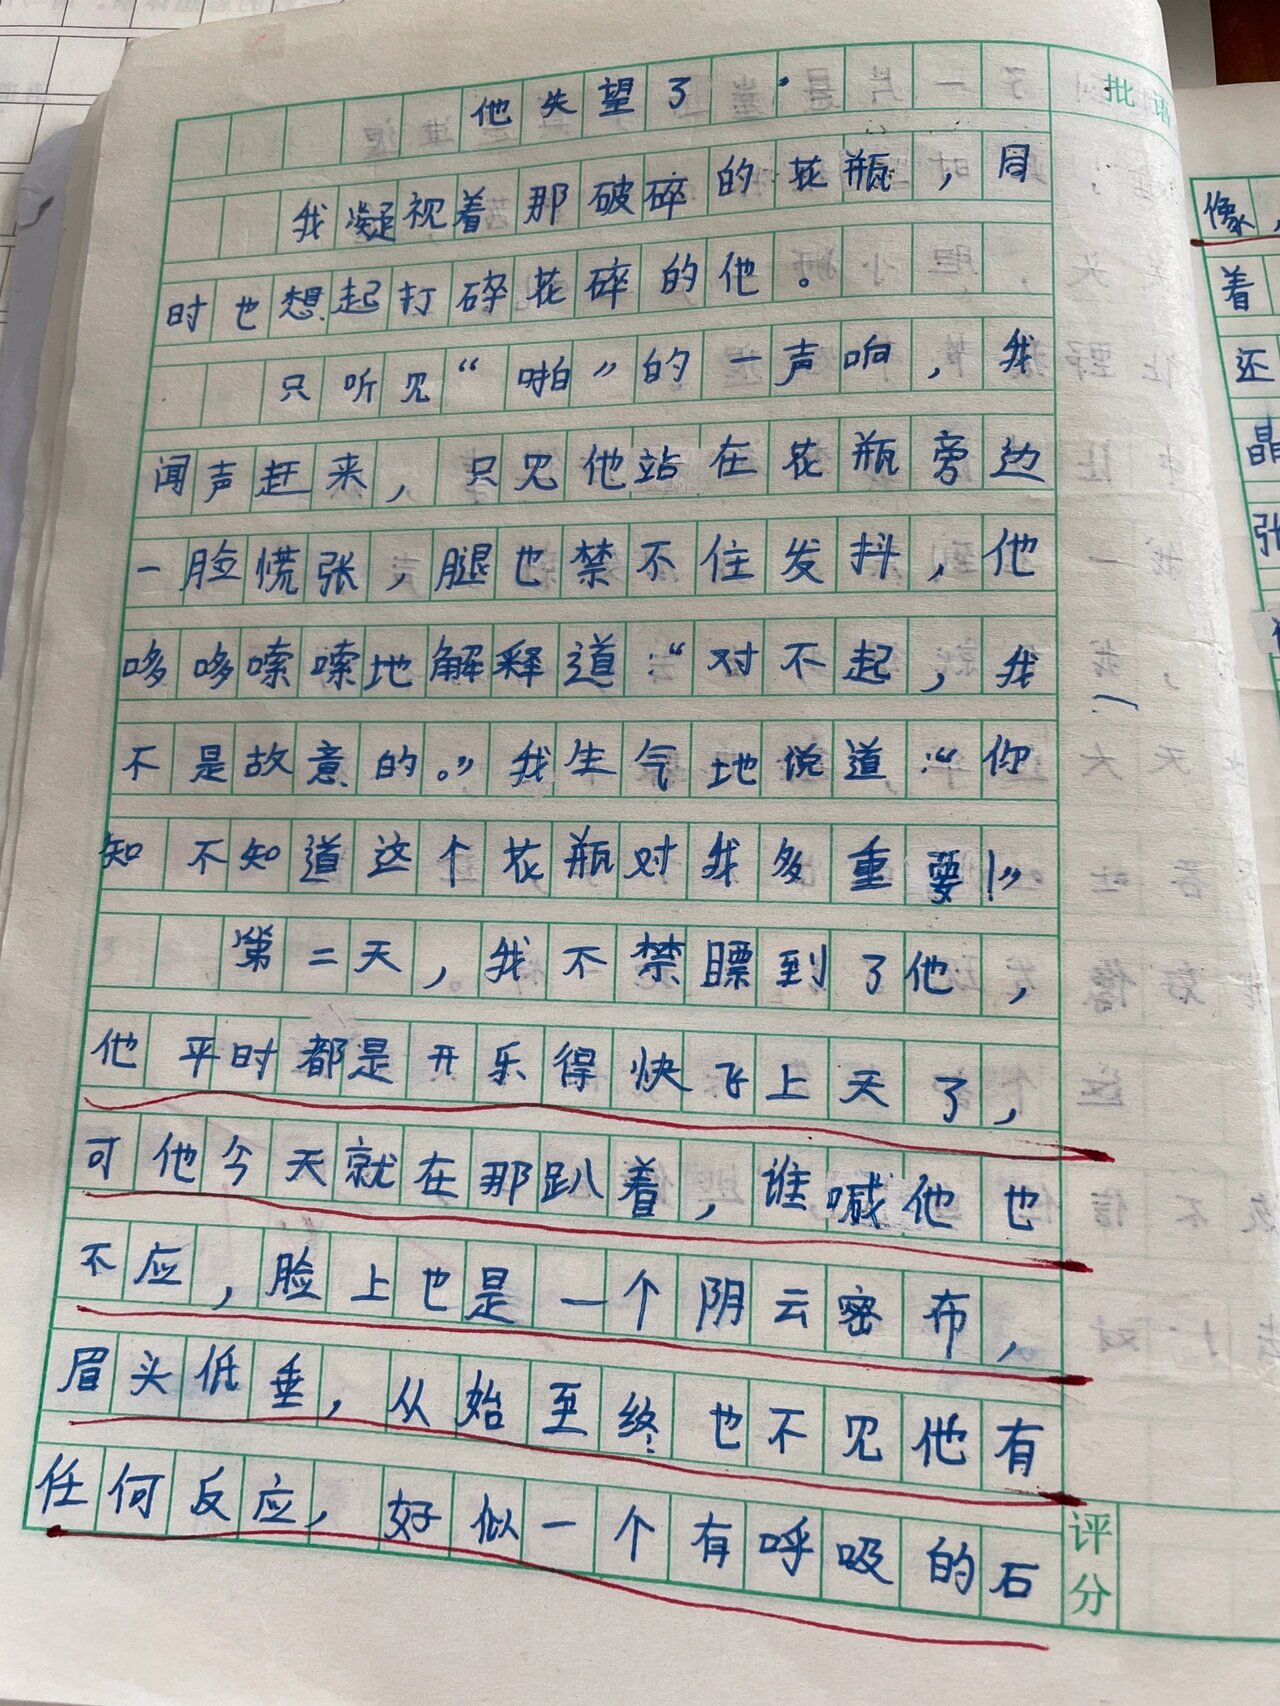 他失望了
批语
我凝视着那破碎的花瓶，同
时也想起打碎花碎的他。
只听见“啪”的一声响，我
闻声赶来，只见他站在花瓶旁边
一脸慌张，腿也禁不住发抖，他
哆哆嗦嗦地解释道：“对不起，我
不是故意的。”我生气地说道：“你
知不知道这个花瓶对我多重要！”
第二天，我不禁瞟到了他，
他平时都是开乐得快飞上天了，
可他今天就在那趴着，谁喊他也
不应，脸上也是一个阴云密布，
眉头低垂，从始至终也不见他有
任何反应，好似一个有呼吸的石
评分
像，
着
还
晶
张